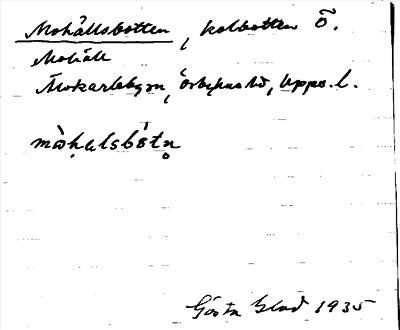 Mohällsbotten, kolbotten Ö.
Mohäll
Älvkarleby sn, Örbyhus hd, Upps. l.
mɷ̀hạlsbòtn̥
Gösta Glad 1935